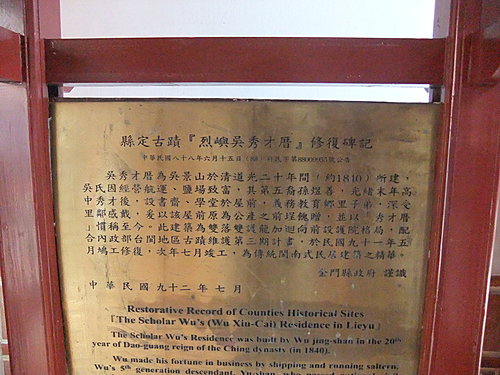 縣定古蹟『烈嶼吳秀才厝』修復碑記
中華民國八十八年六月十五日(88)府民字第88009955號公告
吳秀才厝為吳景山於清道光二十年間(約1810)所建,
吳氏因經營航運、鹽場致富,其第五裔孫煜善,光緒末年高
中秀才後,設書齋、學堂於屋前,義務教育鄉里子弟,深受
里鄰感戴,爰以該屋前原為公產之前埕餽贈,並以「秀才厝
」慣稱至今。此建築為雙落雙護龍加迴向前設護院格局,配
合內政部台閩地區古蹟維護第三期計畫,於民國九十一年五
月鳩工修復,次年七月竣工,為傳統閩南式民居建築之精華。
金門縣政府 謹識
中華民國九十二年七月
Restorative Record of Counties Historical Sites
「The Scholar Wu's (Wu Xiu-Cai) Residence in Lieyu」
The Scholar Wu's Residence was built by Wu jing-shan in the 20th
year of Dao-guang reign of the Ching dynasty (in 1840).
Wu made his fortune in business by shipping and running saltern.
Wu's 5th generation descendant, Yu-shan, who passed